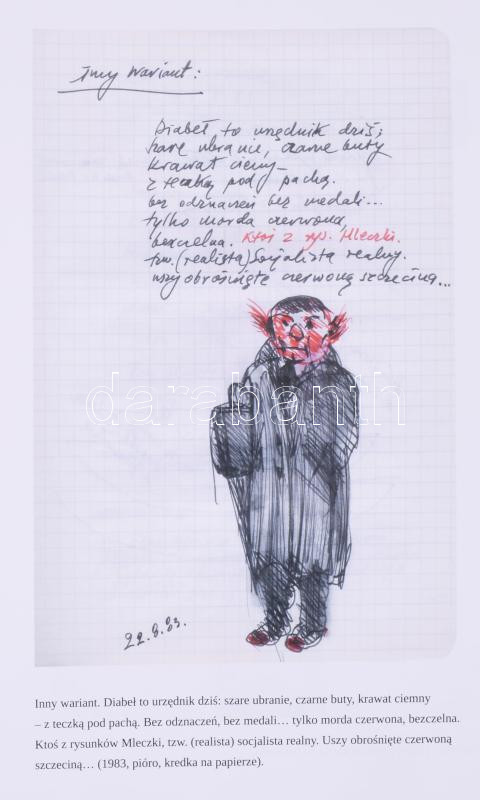 Inny wariant:
Diabeł to urzędnik dziś;
szare ubranie, czarne buty
krawat ciemny –
z teczką pod pachą.
bez odznaczeń bez medali...
tylko morda czerwona,
bezczelna. Ktoś z rys. Mleczki.
tzw. (realista) Socjalista realny.
uszy obrośnięte czerwoną szczeciną...
darabanth
22.8.83.
Inny wariant. Diabeł to urzędnik dziś: szare ubranie, czarne buty, krawat ciemny
– z teczką pod pachą. Bez odznaczeń, bez medali… tylko morda czerwona, bezczelna.
Ktoś z rysunków Mleczki, tzw. (realista) socjalista realny. Uszy obrośnięte czerwoną
szczeciną… (1983, pióro, kredka na papierze).